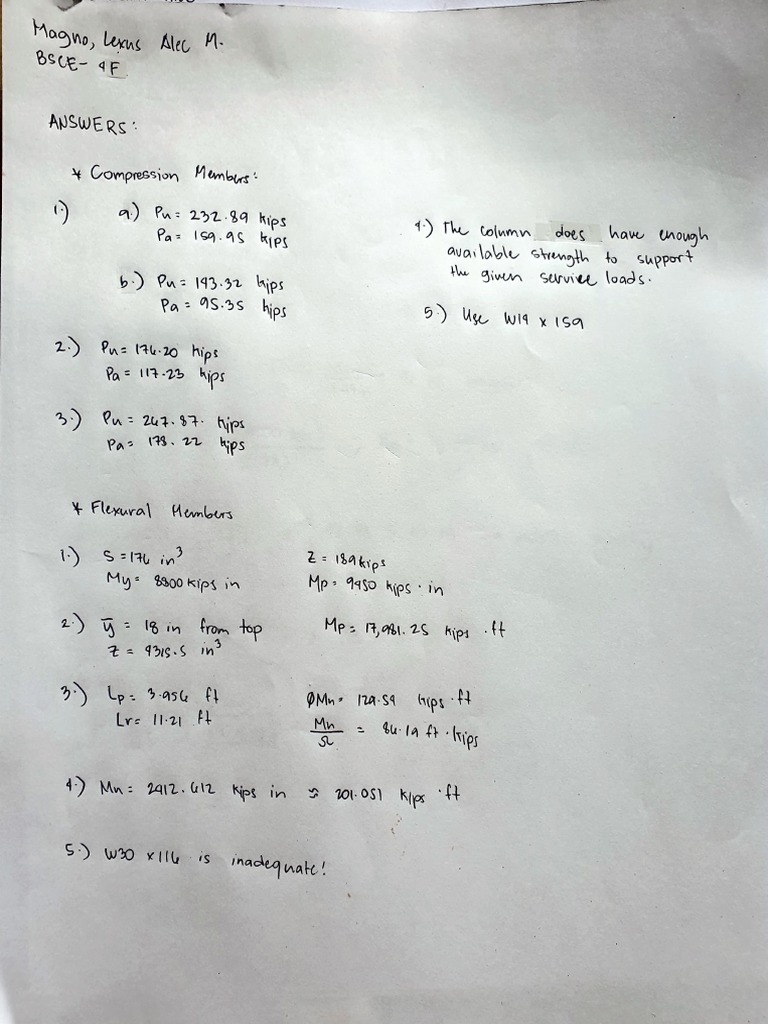 Magno, Lexus Alec M.
BSCE- 4F
ANSWERS:
* Compression Members:
1.) a.) Pu = 232.89 kips
Pa = 159.95 kips
b.) Pu = 143.32 kips
Pa = 95.35 kips
2.) Pu = 176.20 kips
Pa = 117.23 kips
3.) Pu = 267.87. kips
Pa = 178.22 kips
4.) The column does have enough
available strength to support
the given service loads.
5.) Use W14 x 159
* Flexural Members
1.) S = 176 in³ Z = 189 kips
My = 8800 kips in Mp = 9450 kips · in
2.) ȳ = 18 in from top Mp = 17,981.25 kips · ft
Z = 4315.5 in³
3.) Lp = 3.956 ft ØMn = 129.59 kips · ft
Lr = 11.21 ft Mn/Ω = 86.19 ft · kips
4.) Mn = 2412.612 kips in ≈ 201.051 kips · ft
5.) W30 x 116 is inadequate!